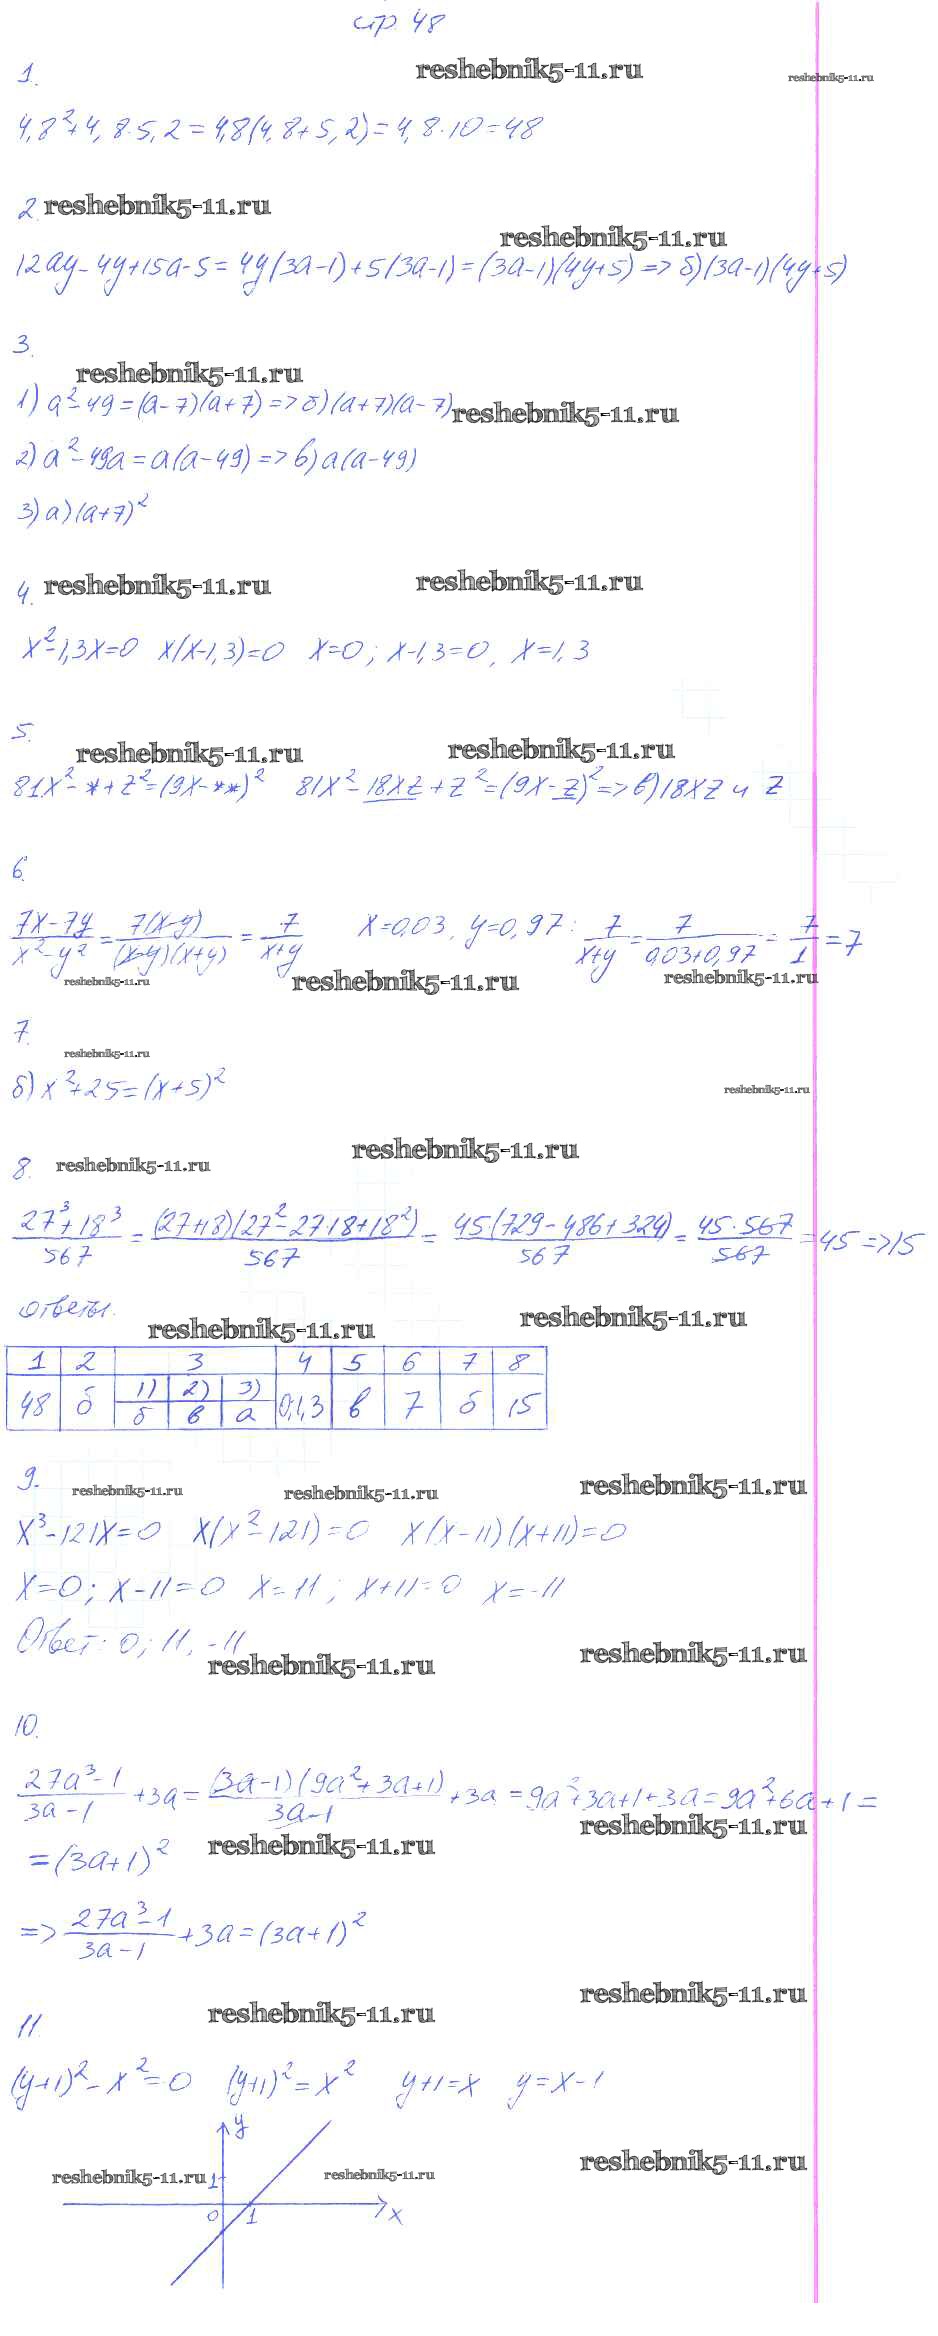 стр. 48
reshebnik5-11.ru
reshebnik5-11.ru
1.
4,8²+4,8·5,2=4,8(4,8+5,2)=4,8·10=48
2. reshebnik5-11.ru
reshebnik5-11.ru
12ay-4y+15a-5=4y(3a-1)+5(3a-1)=(3a-1)(4y+5)=>б)(3a-1)(4y+5)
3.
reshebnik5-11.ru
1) a²-49=(a-7)(a+7)=>б)(a+7)(a-7)
reshebnik5-11.ru
2) a²-49a=a(a-49)=>в)a(a-49)
3) а)(a+7)²
4. reshebnik5-11.ru reshebnik5-11.ru
x²-1,3x=0 x(x-1,3)=0 x=0; x-1,3=0, x=1,3
5.
reshebnik5-11.ru reshebnik5-11.ru
81x²-*+z²=(9x-**)² 81x²-18xz+z²=(9x-z)²=>в)18xz и z
6.
7x-7y/x²-y²=7(x-y)/(x-y)(x+y)=7/x+y x=0,03, y=0,97: 7/x+y=7/0,03+0,97=7/1=7
reshebnik5-11.ru reshebnik5-11.ru reshebnik5-11.ru
7.
reshebnik5-11.ru
б) x²+25=(x+5)²
reshebnik5-11.ru
reshebnik5-11.ru
8. reshebnik5-11.ru
27³+18³/567=(27+18)(27²-27·18+18²)/567=45(729-486+324)/567=45·567/567=45=>15
ответы.
reshebnik5-11.ru reshebnik5-11.ru
1 2 3 4 5 6 7 8
48 б 1) 2) 3) 0,1,3 в 7 б 15
б в а
9.
reshebnik5-11.ru reshebnik5-11.ru reshebnik5-11.ru
x³-121x=0 x(x²-121)=0 x(x-11)(x+11)=0
x=0; x-11=0 x=11; x+11=0 x=-11
Ответ: 0; 11, -11
reshebnik5-11.ru reshebnik5-11.ru
10.
27a³-1/3a-1+3a=(3a-1)(9a²+3a+1)/3a-1+3a=9a²+3a+1+3a=9a²+6a+1=
reshebnik5-11.ru
=(3a+1)² reshebnik5-11.ru
=>27a³-1/3a-1+3a=(3a+1)²
reshebnik5-11.ru
reshebnik5-11.ru
11.
(y+1)²-x²=0 (y+1)²=x² y+1=x y=x-1
y
reshebnik5-11.ru 1 reshebnik5-11.ru reshebnik5-11.ru
0 1 x